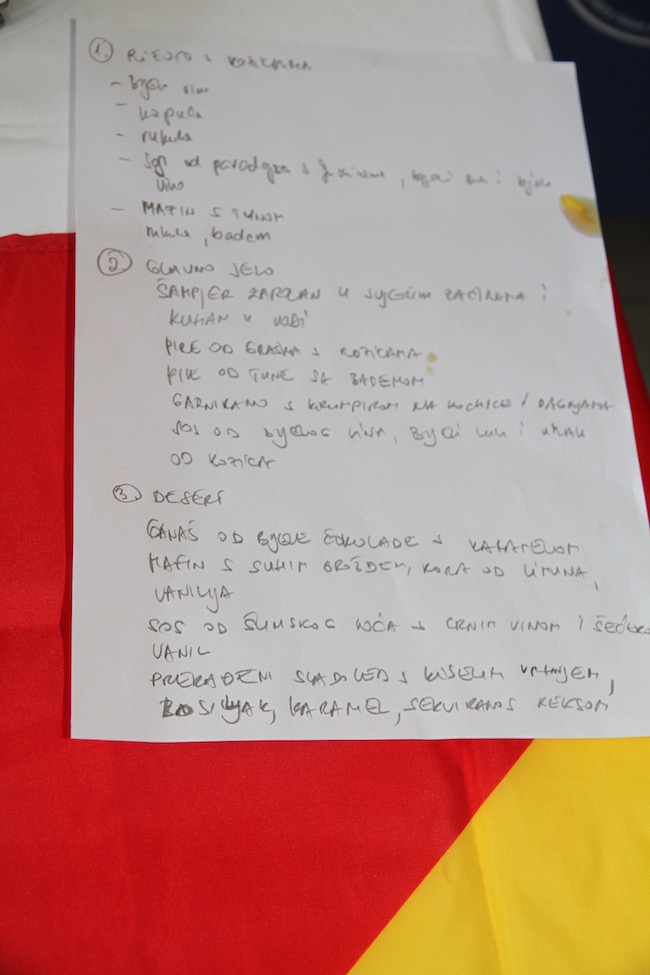 ① RIŽOTO S KOZICAMA
- Bijelo vino
- kapula
- rukula
- Sos od paradajza s , bijeli luk i bijelo
vino
- MAFIN S TUNOM
rukola, badem
② GLAVNO JELO
ŠAMPJER ZAPEČAN U SVJEŽIM ZAČINIMA I
KUHAN U VODI
PIRE OD GRAŠKA S KOZICAMA
KIK OD TUNE SA BADEMOM
GARNIRANO S KRUMPIROM NA KOCKICE I DAGNJAMA
SOS OD BIJELOG VINA, BIJELI LUK I UMAK
OD KOZICA
③ DESERT
GANAŠ OD BIJELE ČOKOLADE S KARAMELOM
MAFIN S SUHIM GROŽĐEM, KORA OD LIMUNA,
VANILIJA
SOS OD ŠUMSKOG VOĆA S CRNIM VINOM I ŠEĆER
VANIL
SLADOLED S KISELIM VRHNJEM,
BOSILJAK, KARAMEL, SERVIRANO S KEKSOM